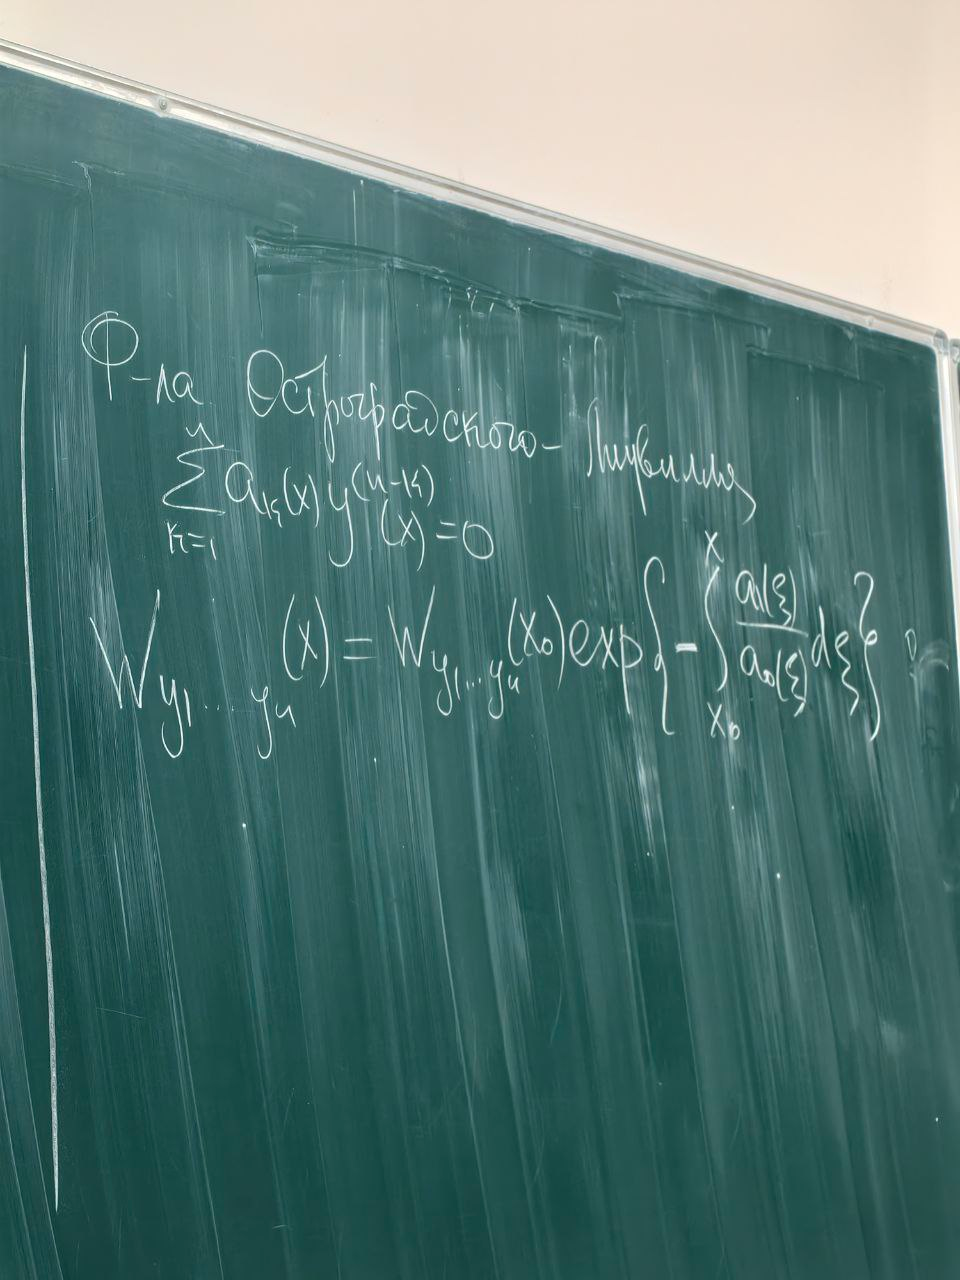 Ф-ла Остроградского-Лиувилля
\sum_{k=1}^{n} a_k(x) y^{(n-k)}(x) = 0
W_{y_1 \ldots y_n}(x) = W_{y_1 \ldots y_n}(x_0) exp\left\{ - \int_{x_0}^{x} \frac{a_1(\xi)}{a_0(\xi)} d\xi \right\}